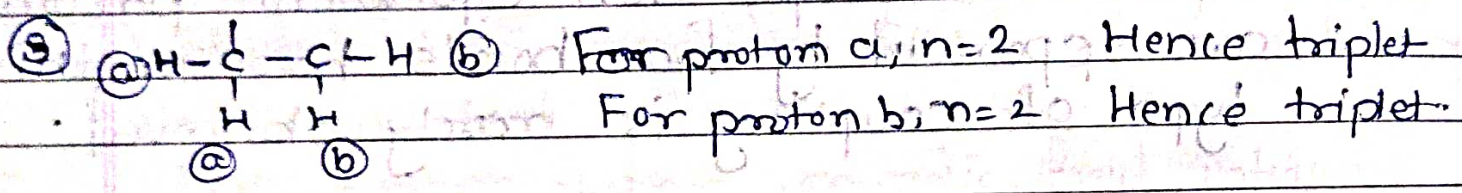 ③ ⓐ H-C-C-H ⓑ For proton a, n=2 Hence triplet
H H For proton b; n=2 Hence triplet.
ⓐ ⓑ